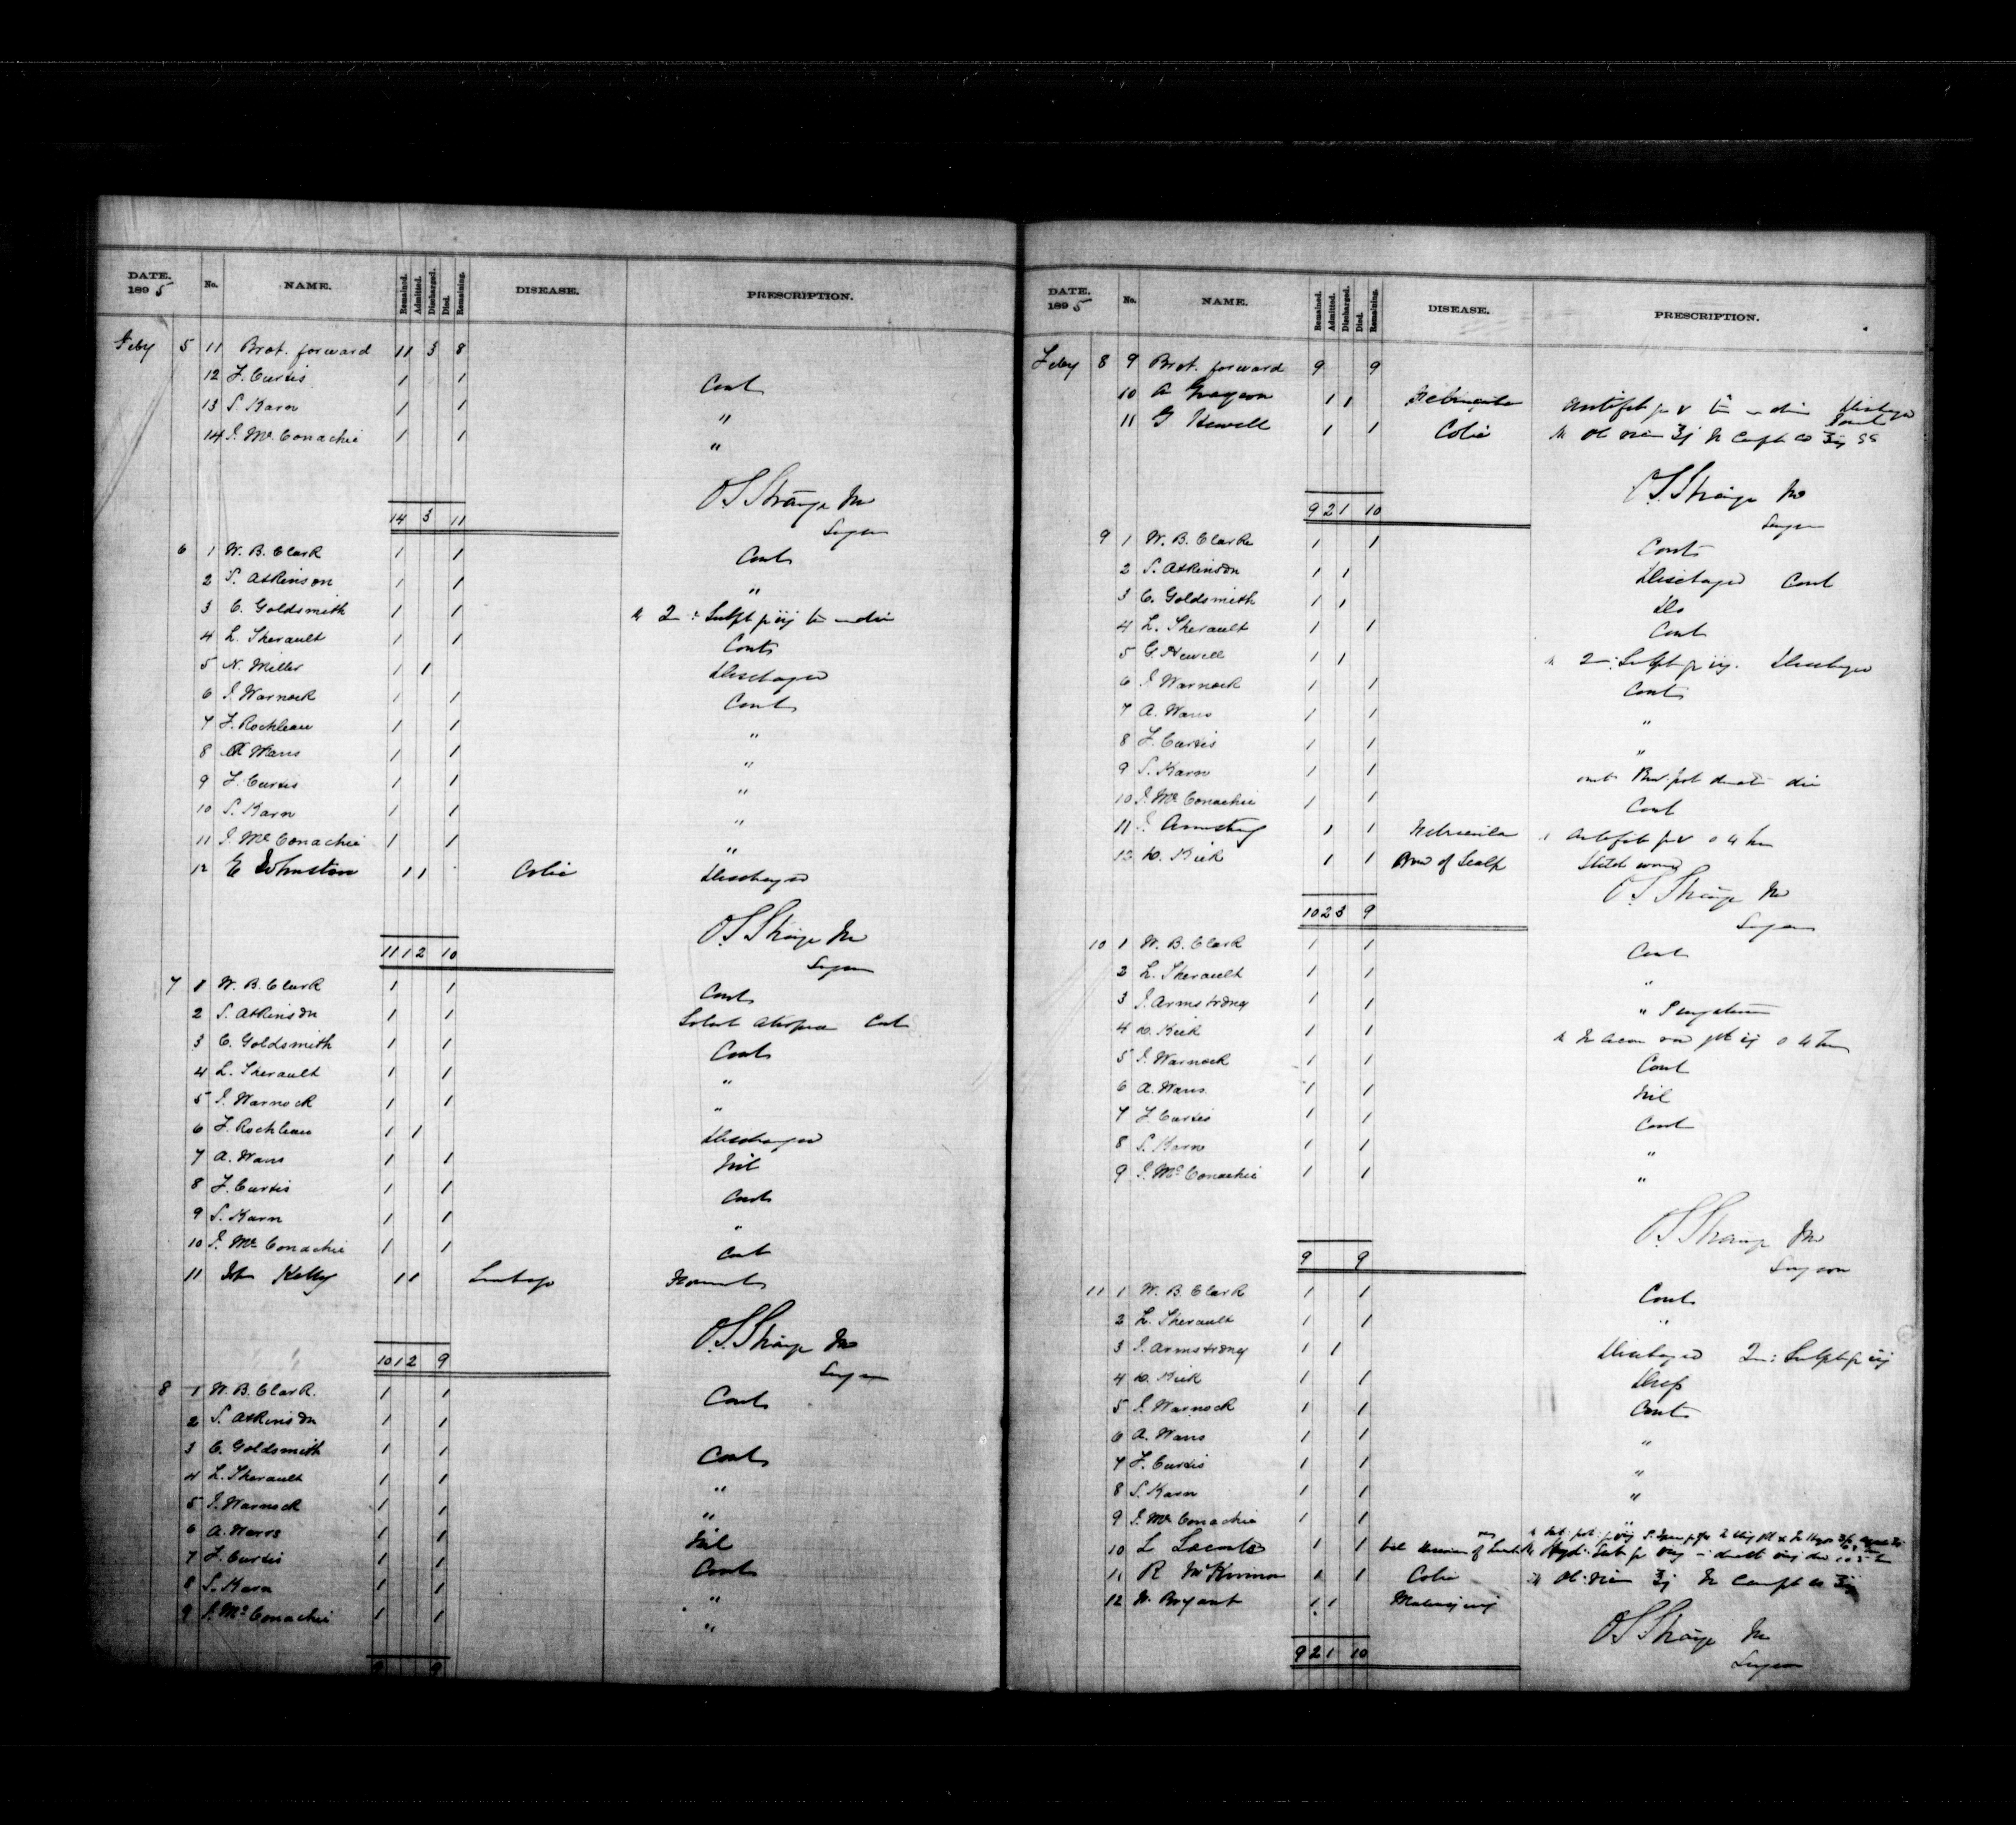 DATE. 1895 No. NAME. Remained. Admitted. Discharged. Died. Remaining. DISEASE. PRESCRIPTION.
Feby 5 11 Brot. forward 11 3 8
12 F. Curtis 1 1 Cont
13 S. Karn 1 1 "
14 J. McConachie 1 1 "
O S Strange MD
14 3 11
Surgeon
6 1 W. B. Clark 1 1 Cont
2 S. Atkinson 1 1 "
3 C. Goldsmith 1 1 Sulph
4 L. Therault 1 1 Cont
5 N. Miller 1 1 Discharged
6 J. Warnock 1 1 Cont
7 F. Rochleau 1 1 "
8 A Wans 1 1 "
9 F. Curtis 1 1 "
10 S. Karn 1 1 "
11 J. McConachie 1 1 "
12 E Johnston 1 1 Colic Discharged
O S Strange MD
11 1 2 10
Surgeon
7 1 W. B. Clark 1 1 Cont
2 S. Atkinson 1 1 Atropia Cont
3 C. Goldsmith 1 1 Cont
4 L. Therault 1 1 "
5 J. Warnock 1 1 "
6 F. Rochleau 1 1 Discharged
7 A. Wans 1 1 Nil
8 F. Curtis 1 1 Cont
9 S. Karn 1 1 "
10 J. McConachie 1 1 Cont
11 Jno Kelly 1 1 Lumbago
O. S. Strange MD
10 1 2 9
Surgeon
8 1 W. B. Clark. 1 1 Cont
2 S. Atkinson 1 1
3 C. Goldsmith 1 1 Cont
4 L. Therault 1 1 "
5 J. Warnock 1 1 "
6 A. Wans 1 1 Nil
7 F. Curtis 1 1 Cont
8 S. Karn 1 1 "
9 J. McConachie 1 1 "
9 9
DATE. 1895 No. NAME. Remained. Admitted. Discharged. Died. Remaining. DISEASE. PRESCRIPTION.
Feby 8 9 Brot. forward 9 9
10 A Grayson 1 1 Febricula
11 G Hewell 1 1 Colic
O. S. Strange MD
9 2 1 10
Surgeon
9 1 W. B. Clark 1 1 Cont
2 S. Atkinson 1 1 Discharged Cont
3 C. Goldsmith 1 1 Do
4 L. Therault 1 1 Cont
5 G. Hewell 1 1 Sulph Discharged
6 J. Warnock 1 1 Cont
7 A. Wans 1 1 "
8 F. Curtis 1 1 "
9 S. Karn 1 1
10 J. McConachie 1 1 Cont
11 J. Armstrong 1 1 Febricula
12 D. Kirk 1 1 of Scalp Stitch wound
O S Strange MD
10 2 3 9
Surgeon
10 1 W. B. Clark 1 1 Cont
2 L. Therault 1 1 "
3 J. Armstrong 1 1 "
4 D. Kirk 1 1
5 J. Warnock 1 1 Cont
6 A. Wans. 1 1 Nil
7 F. Curtis 1 1 Cont
8 S. Karn 1 1 "
9 J. McConachie 1 1 "
O S Strange MD
9 9
Surgeon
11 1 W. B. Clark 1 1 Cont
2 L. Therault 1 1 "
3 J. Armstrong 1 1 Discharged
4 D. Kirk 1 1
5 J. Warnock 1 1 Cont
6 A. Wans 1 1 "
7 F. Curtis 1 1 "
8 S. Karn 1 1 "
9 J. McConachie 1 1
10 L Lacomte 1 1
11 R McKinnon 1 1 Colic
12 W. Bryant 1 1 Malingering
O S Strange MD
9 2 1 10
Surgeon